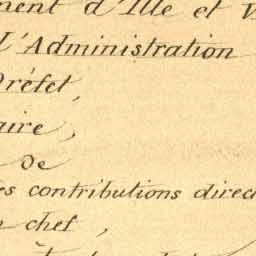 ment d'Ille et V
l'Administration
Préfet,
aire,
De
es contributions direc
n chef,